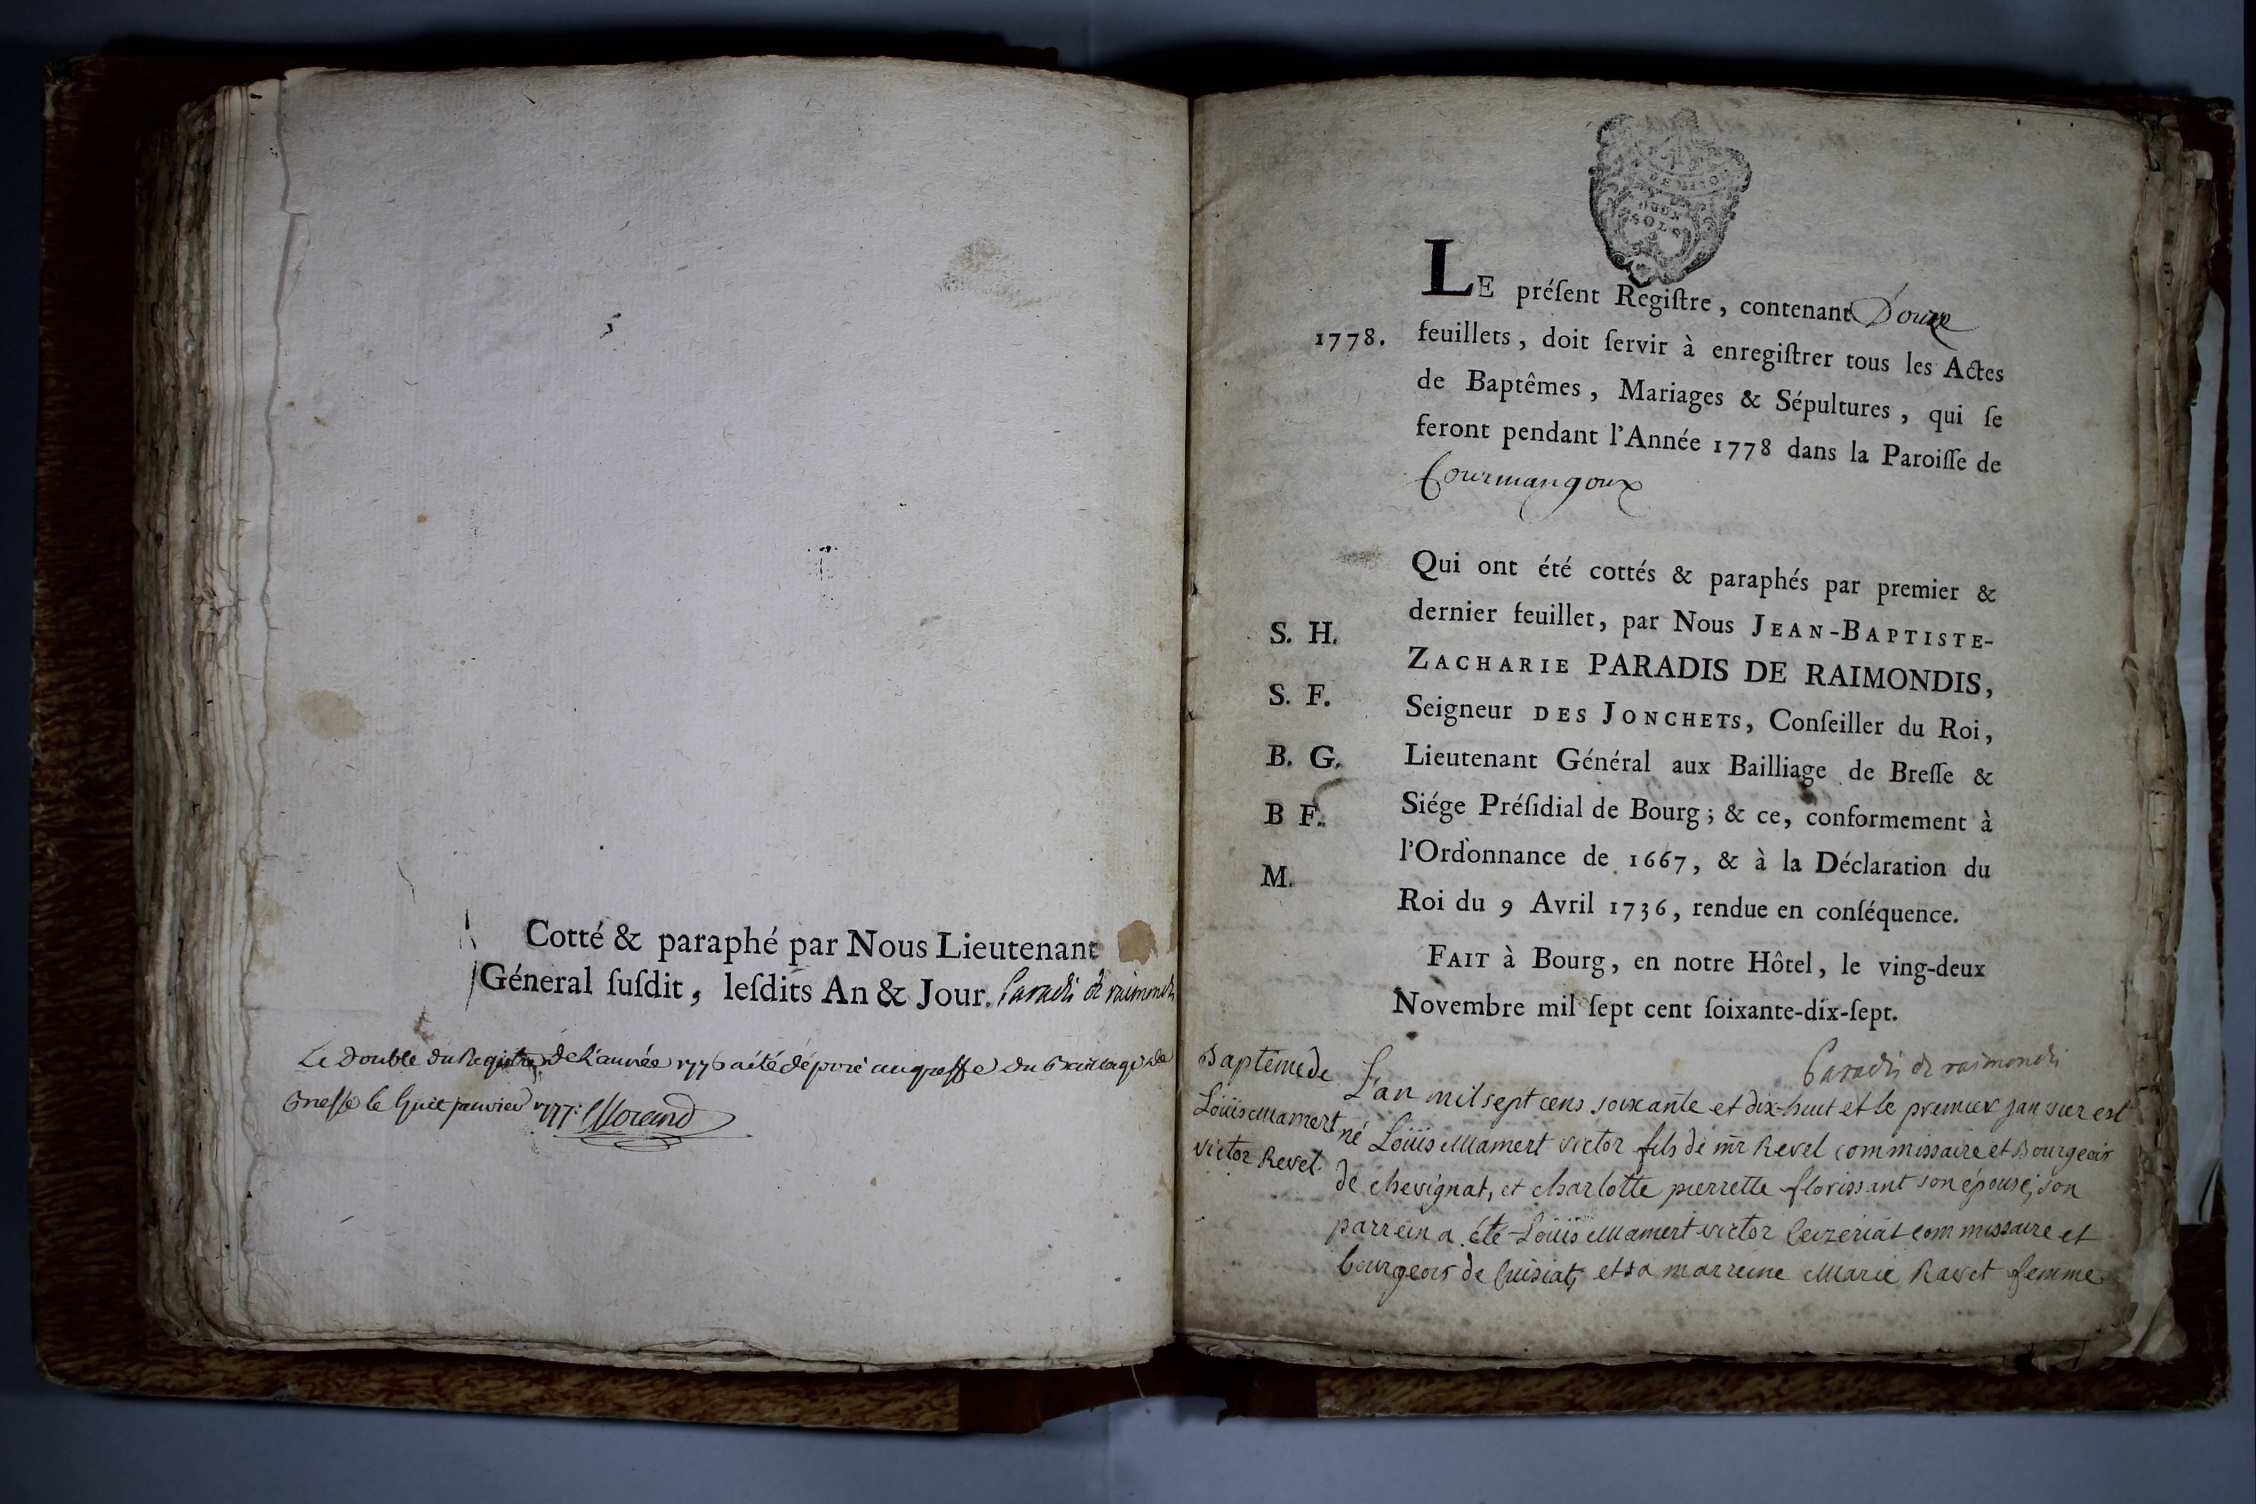 Cotté & paraphé par Nous Lieutenant
Géneral ſuſdit, leſdits An & Jour. Paradis de raimondis
Le Double du Registre de L'année 1776 a été déposé au greffe du Bailliage de
Bresse le huit janvier 1777. Morand
DEUX
SOLS
LE préſent Regiſtre, contenant Douze
1778. feuillets, doit ſervir à enregiſtrer tous les Actes
de Baptêmes, Mariages & Sépultures, qui ſe
feront pendant l'Année 1778 dans la Paroiſſe de
Courmangoux
Qui ont été cottés & paraphés par premier &
dernier feuillet, par Nous JEAN-BAPTISTE-
S. H.
ZACHARIE PARADIS DE RAIMONDIS,
S. F.
Seigneur DES JONCHETS, Conſeiller du Roi,
B. G.
Lieutenant Général aux Bailliage de Breſſe &
B F.
Siége Préſidial de Bourg; & ce, conformement à
l'Ordonnance de 1667, & à la Déclaration du
M.
Roi du 9 Avril 1736, rendue en conſéquence.
FAIT à Bourg, en notre Hôtel, le ving-deux
Novembre mil ſept cent ſoixante-dix-ſept.
Paradis de raimondis
Baptême de
Loüis Mamert
victor Revel.
L'an mil sept cens soixante et dix-huit et le premier janvier est
né Loüis Mamert victor fils de mr Revel commissaire et Bourgeois
de chevignat, et charlotte pierrette florissant son épouse; son
parrein a été Loüis Mamert victor Ceizeriat commissaire et
bourgeois de Cuisiat, et sa marreine Marie Ravet femme